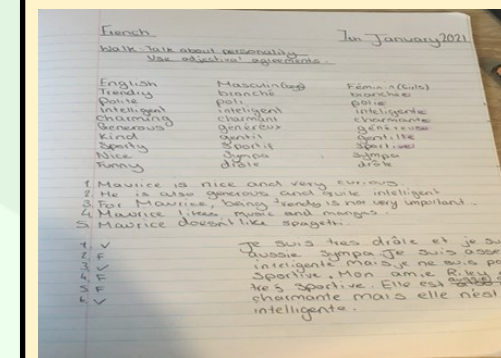 French
7th January 2021
Walk: Talk about personality
Use adjectival agreements.
English Masculin (boys) Féminin (Girls)
Trendy branché branchée
Polite poli polie
Intelligent inteligent inteligente
Charming charmant charmante
Generous généreux généreuse
Kind gentil gentille
Sporty Sportif Sportive
Nice Sympa Sympa
Funny drôle drôle
1. Maurice is nice and very curious.
2. He is also generous and quite intelligent
3. For Maurice, being trendy is not very important.
4. Maurice likes, music and mangas.
5. Maurice doesn't like spagetti.
1. V
2. F
3. V
4. F
5. F
6. V
Je suis tres drôle et je su
aussie sympa. Je suis asse
inteligente mais je ne suis pa
Sportive. Mon amie Riley
tres Sportive. Elle est
charmante mais elle n'est
intelligente.